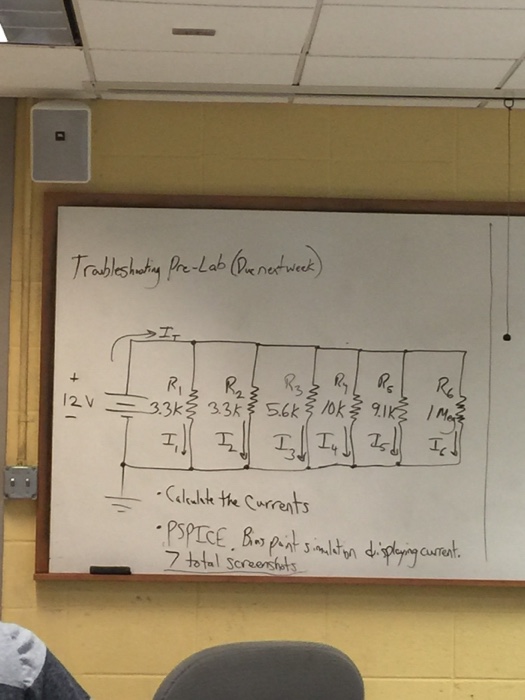 Troubleshooting Pre-Lab (Due next week)
→ IT
+
12 V
−
R1
3.3K
R2
3.3K
R3
5.6K
R4
10K
R5
9.1K
R6
1 Meg
I1
I2
I3
I4
I5
I6
• Calculate the Currents
• PSPICE. Bias point simulation displaying current.
7 total screenshots